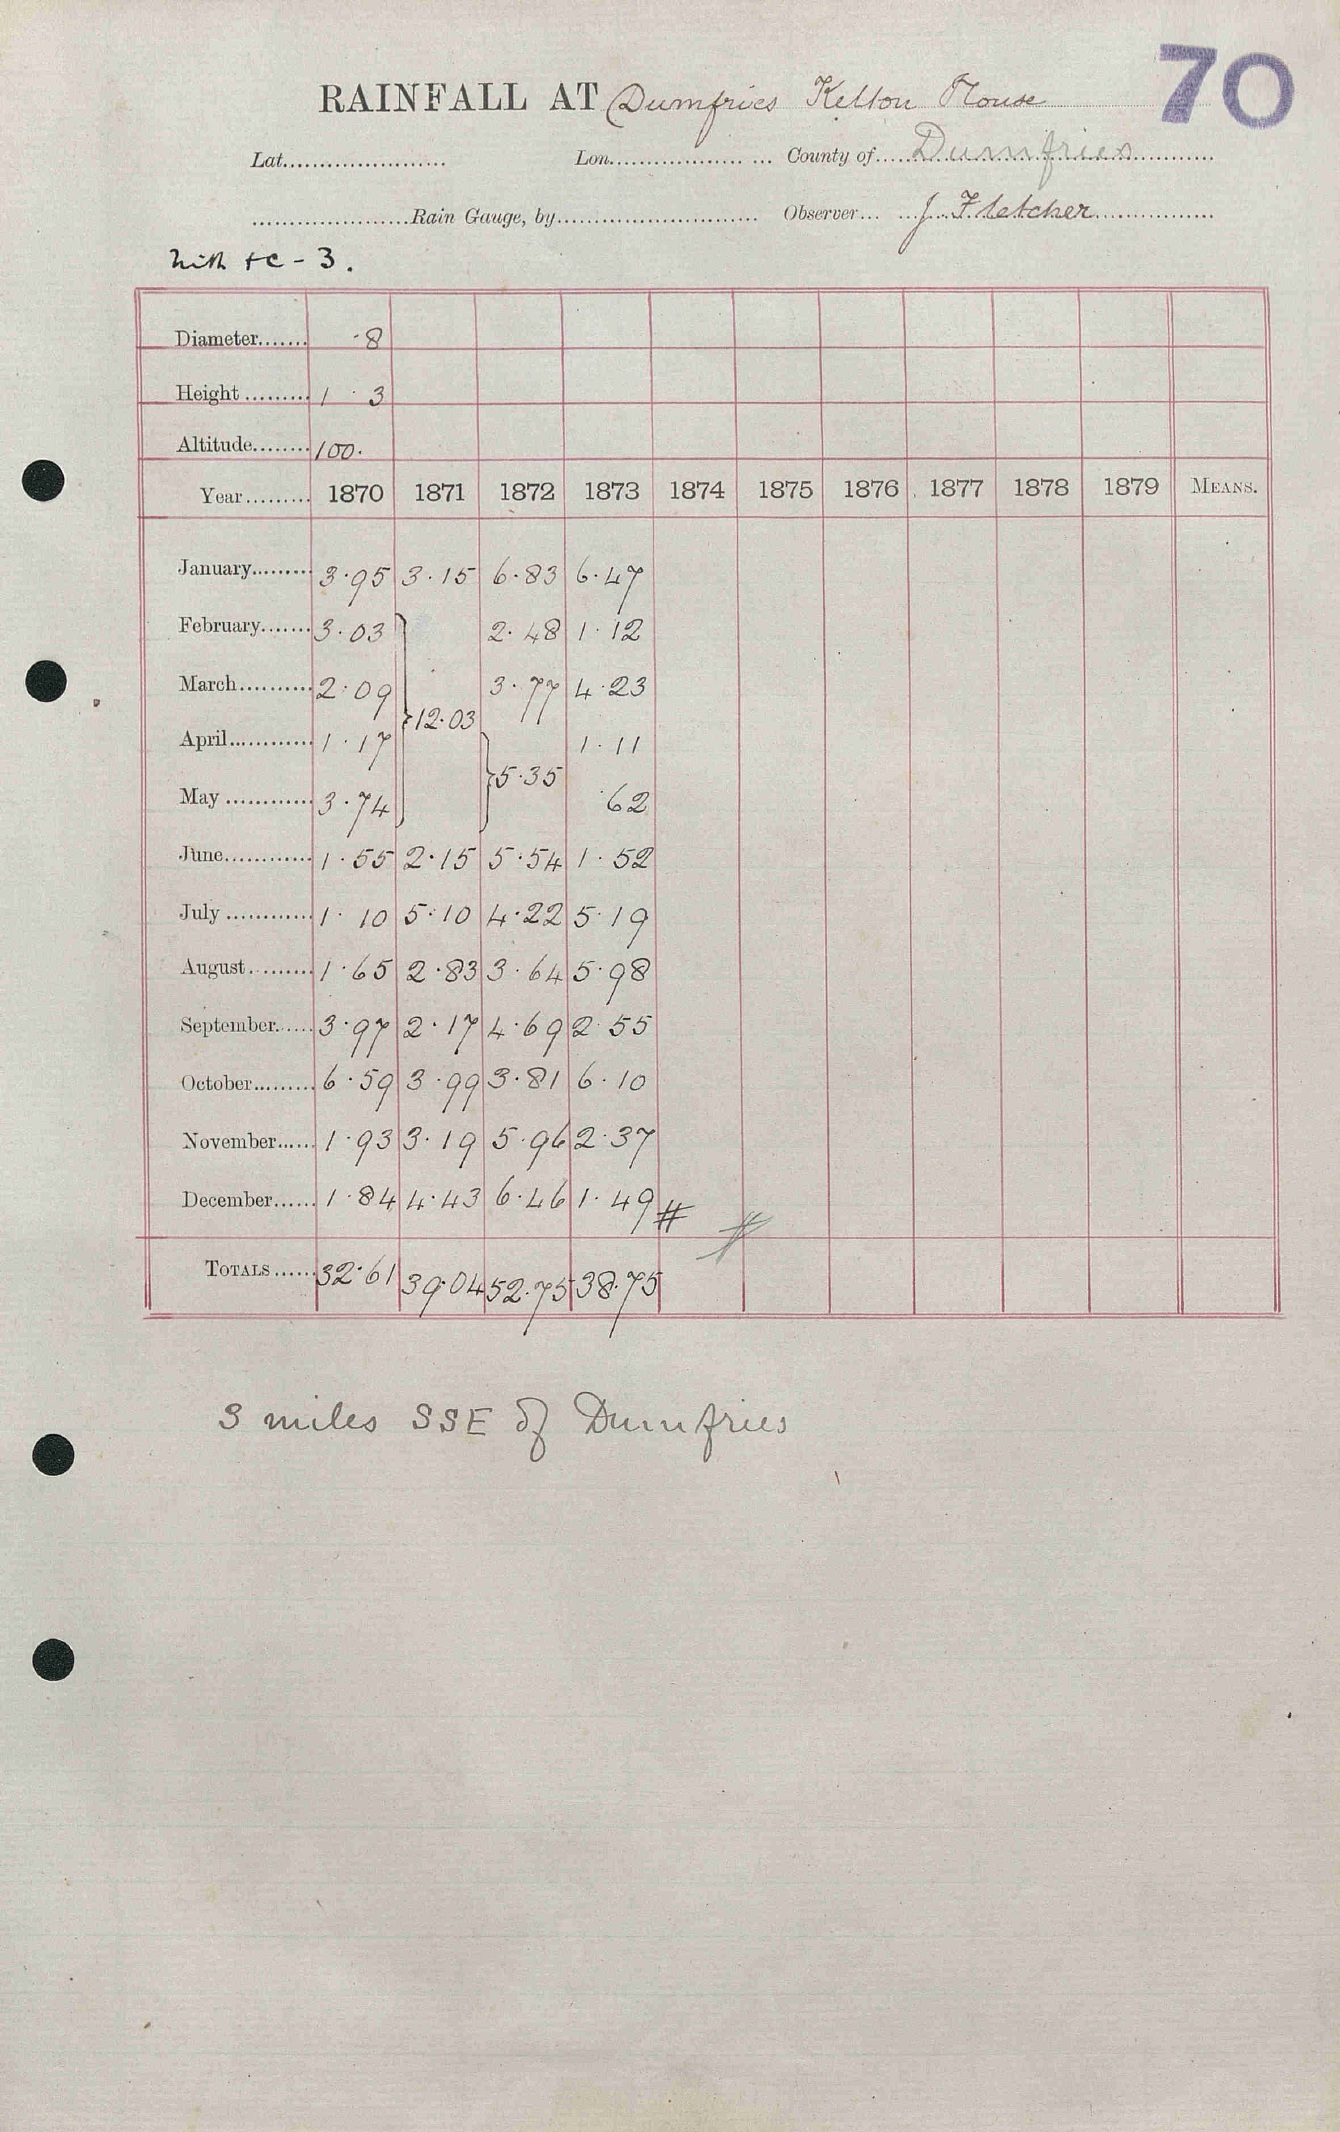 70
RAINFALL AT Dumfries Kelton House
Lat...................... Lon.................. ... County of....Dumfries............
.....................Rain Gauge, by........................... Observer... ...J. Fletcher................
- 3.
Diameter....... ·8
Height ......... 1 · 3
Altitude........ 100.
Year......... 1870 1871 1872 1873 1874 1875 1876 1877 1878 1879 MEANS.
January......... 3·95 3·15 6·83 6·47
February....... 3·03 2·48 1·12
March.......... 2·09 3·77 4·23
} 12·03
April............ 1·17 1·11
} 5·35
May ............ 3·74 ·62
June............ 1·55 2·15 5·54 1·52
July ............ 1·10 5·10 4·22 5·19
August......... 1·65 2·83 3·64 5·98
September...... 3·97 2·17 4·69 2·55
October......... 6·59 3·99 3·81 6·10
November...... 1·93 3·19 5·96 2·37
December...... 1·84 4·43 6·46 1·49 # #
TOTALS...... 32·61 39·04 52·75 38·75
3 miles SSE of Dumfries